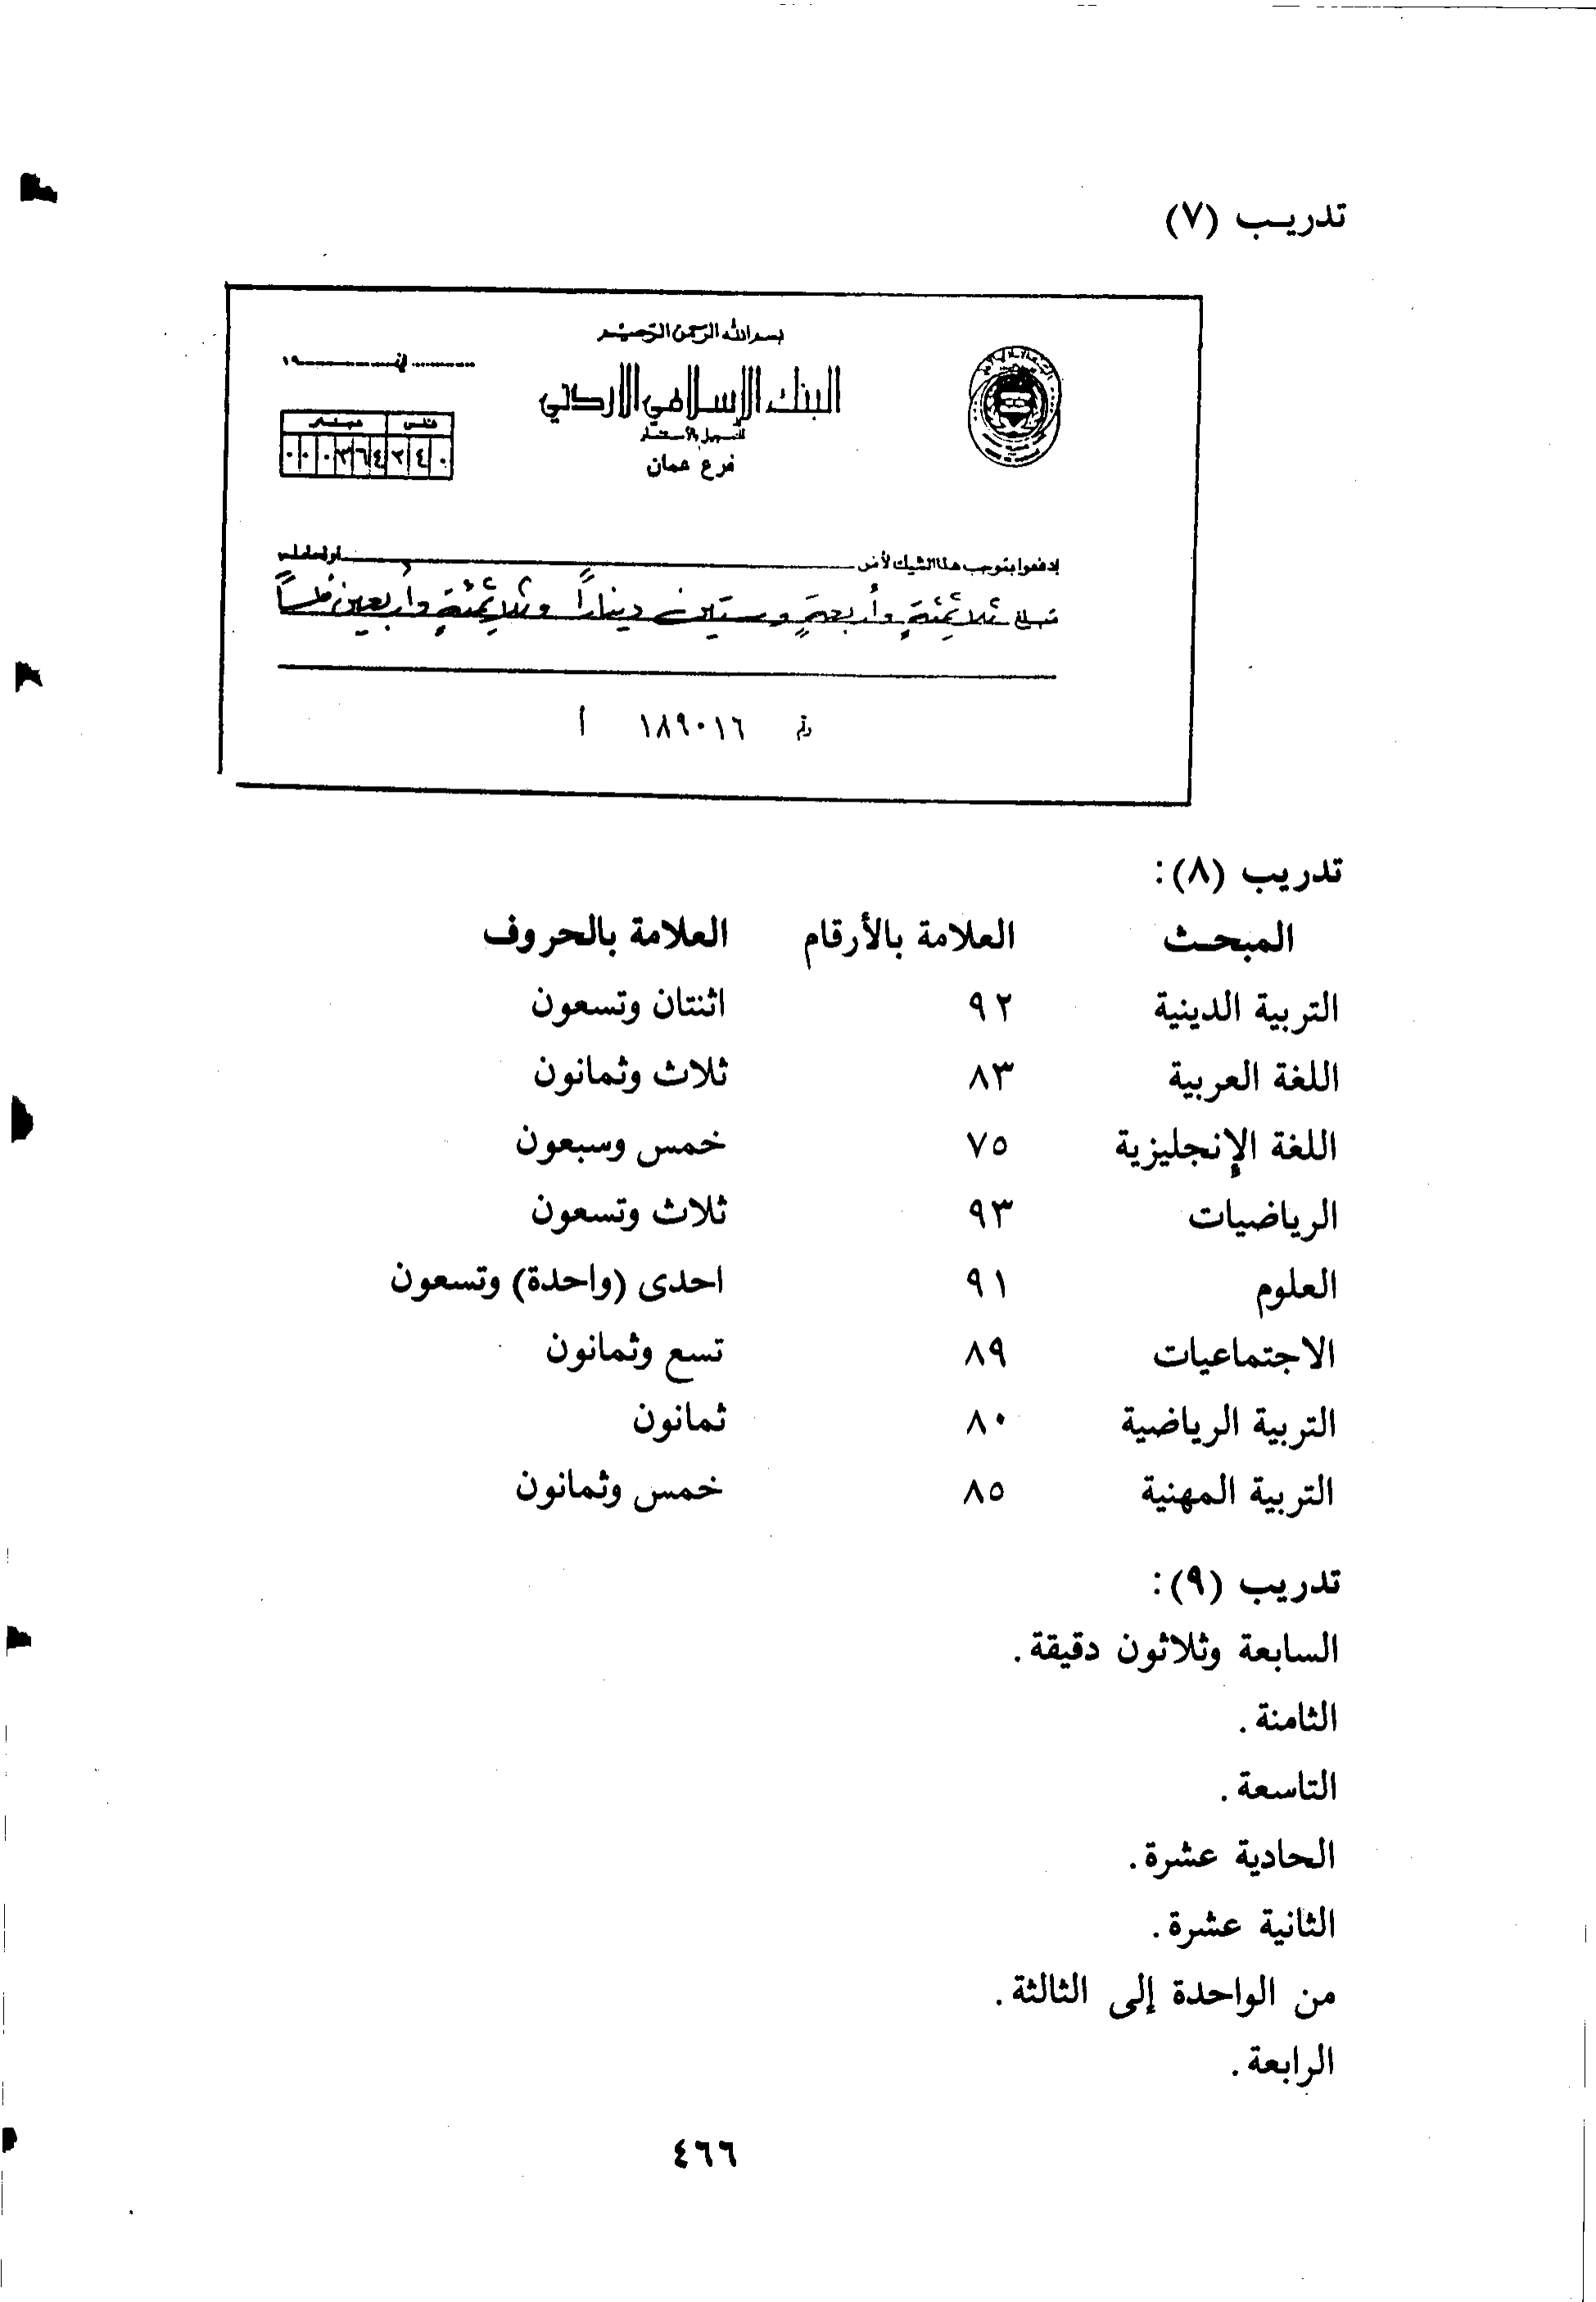 تدريب (٧)
بسم الله الرحمن الرحيم
في ١٩
البنك الإسلامي الأردني
للتمويل والاستثمار
فرع عمان
فلس دينار
٠٠٠٣٦٤ ٣٤٠
ادفعوا بموجب هذا الشيك لأمر أو لحامله
مبلغ ثلاثمئةٍ وأربعةٍ وستين ديناراً وثلاثمئةٍ وأربعين فلساً
رقم ١٨٩٠١٦ أ
تدريب (٨):
المبحث العلامة بالأرقام العلامة بالحروف
التربية الدينية ٩٢ اثنتان وتسعون
اللغة العربية ٨٣ ثلاث وثمانون
اللغة الإنجليزية ٧٥ خمس وسبعون
الرياضيات ٩٣ ثلاث وتسعون
العلوم ٩١ احدى (واحدة) وتسعون
الاجتماعيات ٨٩ تسع وثمانون
التربية الرياضية ٨٠ ثمانون
التربية المهنية ٨٥ خمس وثمانون
تدريب (٩):
السابعة وثلاثون دقيقة.
الثامنة.
التاسعة.
الحادية عشرة.
الثانية عشرة.
من الواحدة إلى الثالثة.
الرابعة.
٤٦٦